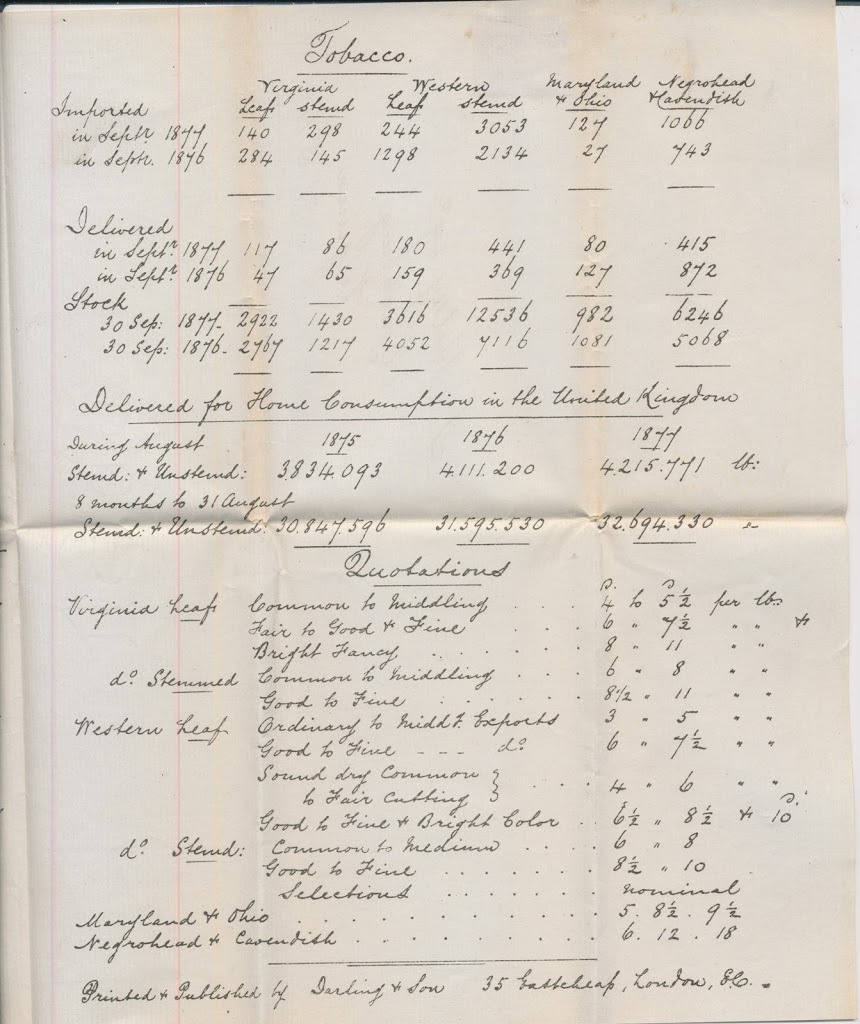 Tobacco.
Virginia Western Maryland Negrohead
Imported Leaf stemd Leaf stemd & Ohio & Cavendish
in Septr. 1877 140 298 244 3053 127 1066
in Septr. 1876 284 145 1298 2134 27 743
Delivered
in Septr. 1877 117 86 180 441 80 415
in Septr. 1876 47 65 159 369 127 872
Stock
30 Sep: 1877- 2922 1430 3616 12536 982 6246
30 Sep: 1876- 2767 1217 4052 7116 1081 5068
Delivered for Home Consumption in the United Kingdom
During August 1875 1876 1877
Stemd: & Unstemd: 3.834.093 4.111.200 4.215.771 lb:
8 months to 31 August
Stemd: & Unstemd: 30.847.596 31.595.530 32.694.330 "
Quotations
D. D.
Virginia Leaf Common to Middling . . . 4 to 5½ per lb:
Fair to Good & Fine . . . 6 " 7½ " " &
Bright Fancy . . . . . 8 " 11 " "
do. Stemmed Common to Middling . . . . 6 " 8 " "
Good to Fine . . . . . . 8½ " 11 " "
Western Leaf Ordinary to Middg. Exports 3 " 5 " "
Good to Fine - - - do. 6 " 7½ " "
Sound dry Common }
to Fair Cutting } . . . 4 " 6 " "
Good to Fine & Bright Color . . 6½ " 8½ & 10 D.
do. Stemd: Common to Medium . . . . 6 " 8
Good to Fine . . . . . . 8½ " 10
Selections . . . . . . nominal
Maryland & Ohio . . . . . . . . . . . 5. 8½ . 9½
Negrohead & Cavendish . . . . . . . . . 6. 12 . 18
Printed & Published by Darling & Son 35 Eastcheap, London, E.C.